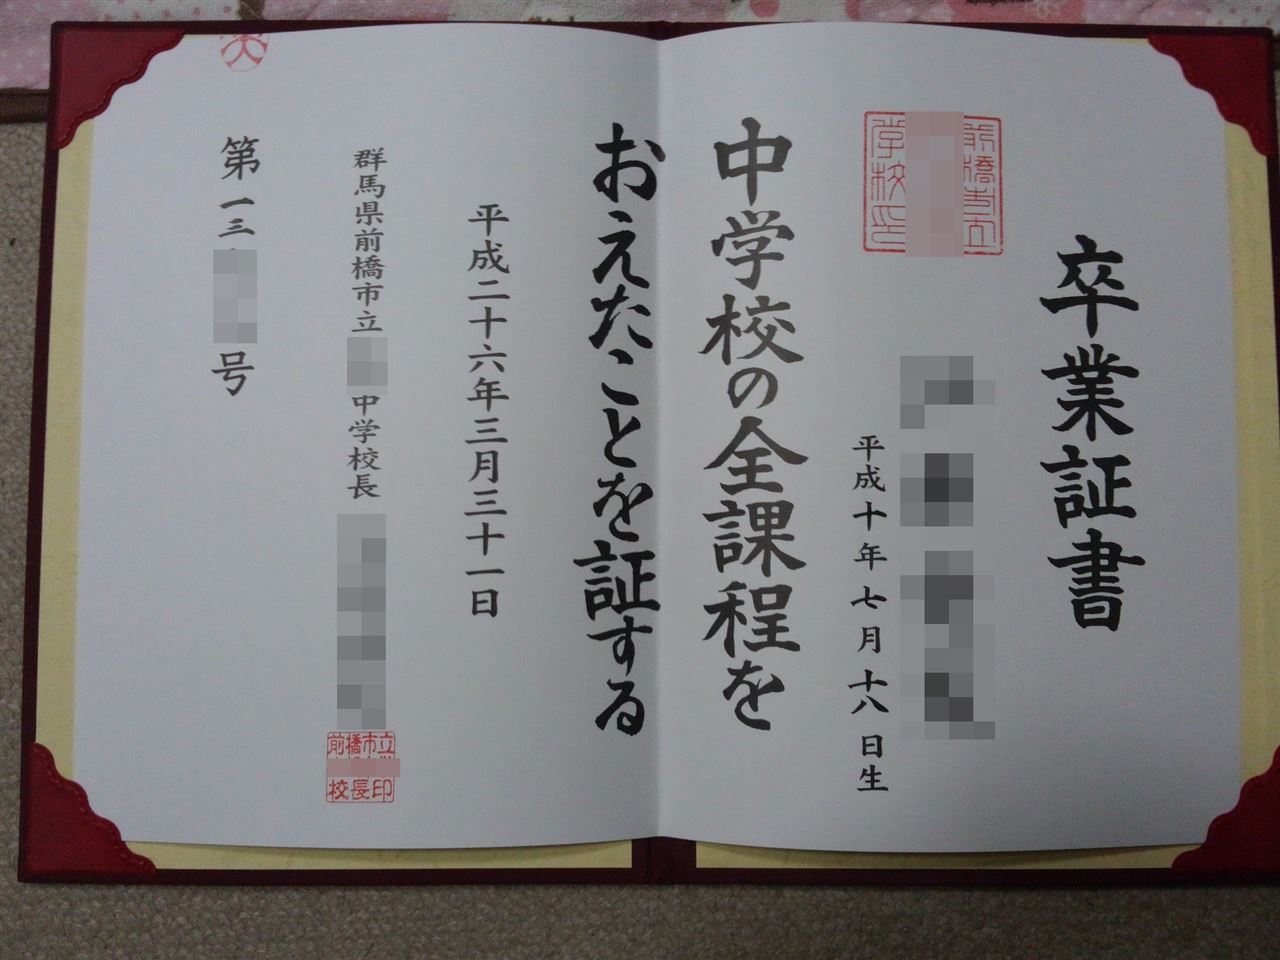 卒業証書
前橋市立
学校印
平成十年七月十八日生
中学校の全課程を
おえたことを証する
平成二十六年三月三十一日
群馬県前橋市立
中学校長
前橋市立
校長印
第一三
号